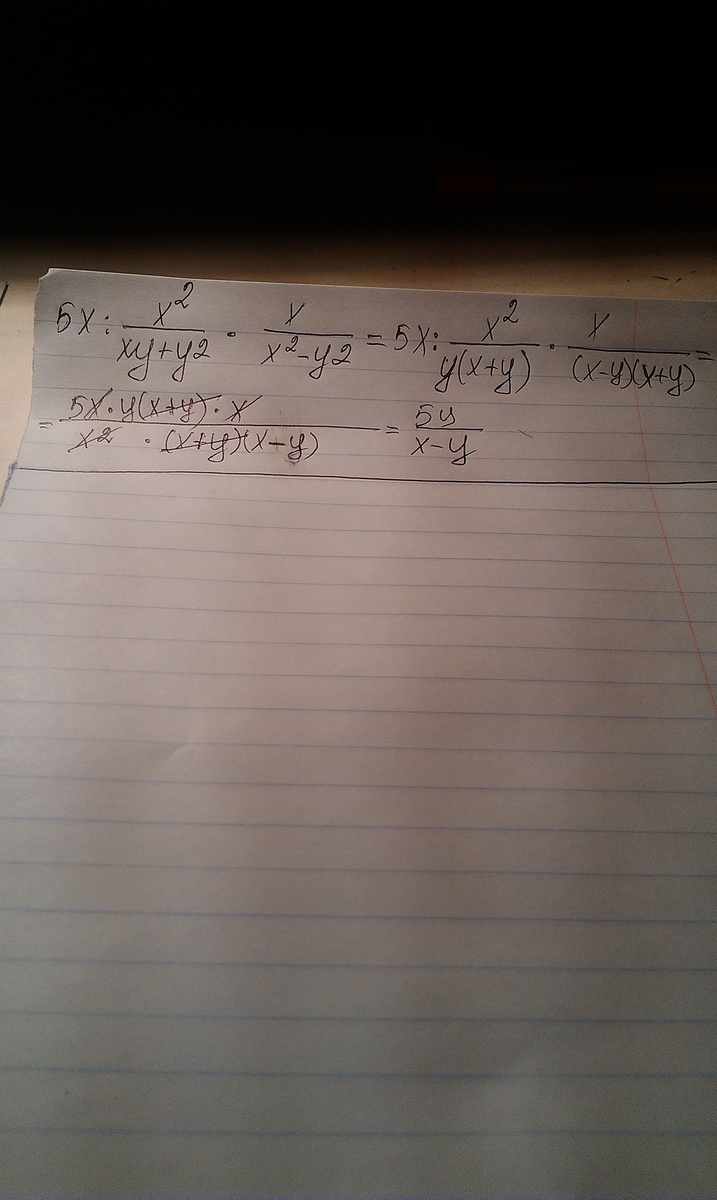 5x : x²/(xy+y2) · x/(x²-y2) = 5x : x²/(y(x+y)) · x/((x-y)(x+y)) =
= (5x·y(x+y)·x)/(x²·(x+y)(x-y)) = 5y/(x-y)